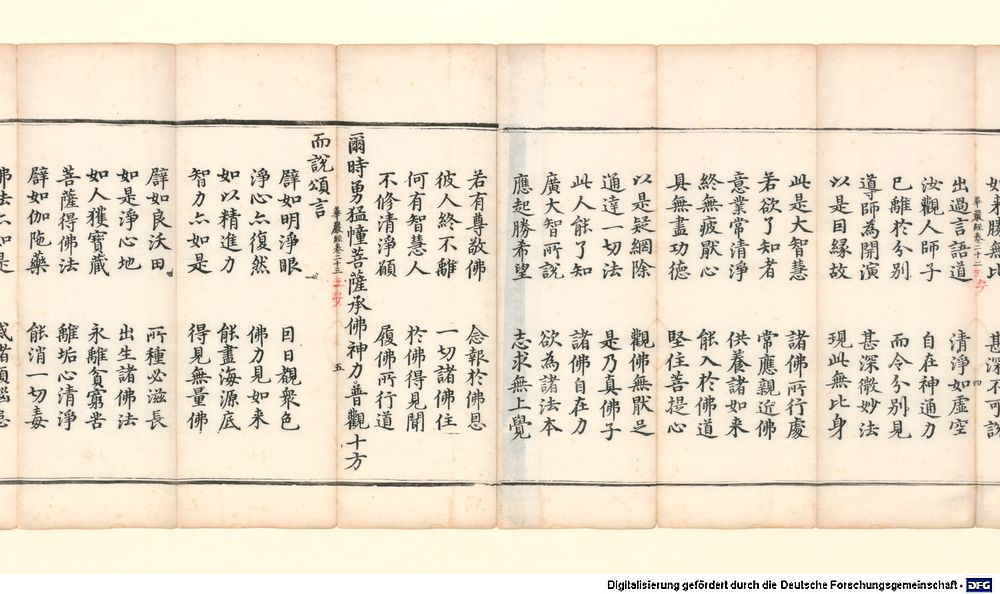 如来勝無比　甚深不可說
華嚴經卷二十三　四
出過言語道　清淨如虛空
汝觀人師子　自在神通力
已離於分別　而令分別見
導師為開演　甚深微妙法
以是因緣故　現此無比身
此是大智慧　諸佛所行處
若欲了知者　常應親近佛
意業常清淨　供養諸如來
終無疲厭心　能入於佛道
具無盡功德　堅住菩提心
以是疑網除　觀佛無厭足
通達一切法　是乃真佛子
此人能了知　諸佛自在力
廣大智所說　欲為諸法本
應起勝希望　志求無上覺
若有尊敬佛　念報於佛恩
彼人終不離　一切諸佛住
何有智慧人　於佛得見聞
不修清淨願　履佛所行道
爾時勇猛幢菩薩承佛神力普觀十方
華嚴經卷二十三　五
而說頌言
譬如明淨眼　因日覩眾色
淨心亦復然　佛力見如來
如以精進力　能盡海源底
智力亦如是　得見無量佛
譬如良沃田　所種必滋長
如是淨心地　出生諸佛法
如人獲寶藏　永離貧窮苦
菩薩得佛法　離垢心清淨
譬如伽陁藥　能消一切毒
佛法亦如是　滅諸煩惱患
Digitalisierung gefördert durch die Deutsche Forschungsgemeinschaft - DFG